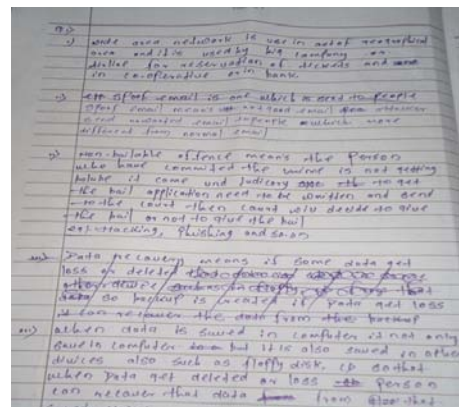 Q.2
i) wide area network is use in out of geographical
area and it is used by big company or
for reservation of tickets and
in co-operative or in bank.
ii) Spoof email is one which is send to people
Spoof email means not good email
send unwanted email to people which more
different from normal email
non-bailable offence means the Person
who have commited the crime is not getting
it come und Judicary to get
the bail application need to be written and send
to the court then court will decide to give
the bail or not to give the bail
eg:- Hacking, Phishing and so on
Data recavery means if some data get
loss or deleted
so backup is created if Data get loss
it can recaver the data from the backup
when data is saved in computer it not only
save in computer but it is also saved in other
divices also such as floppy disk, CD so that
when Data get deleted or loss person
can recaver that data from that